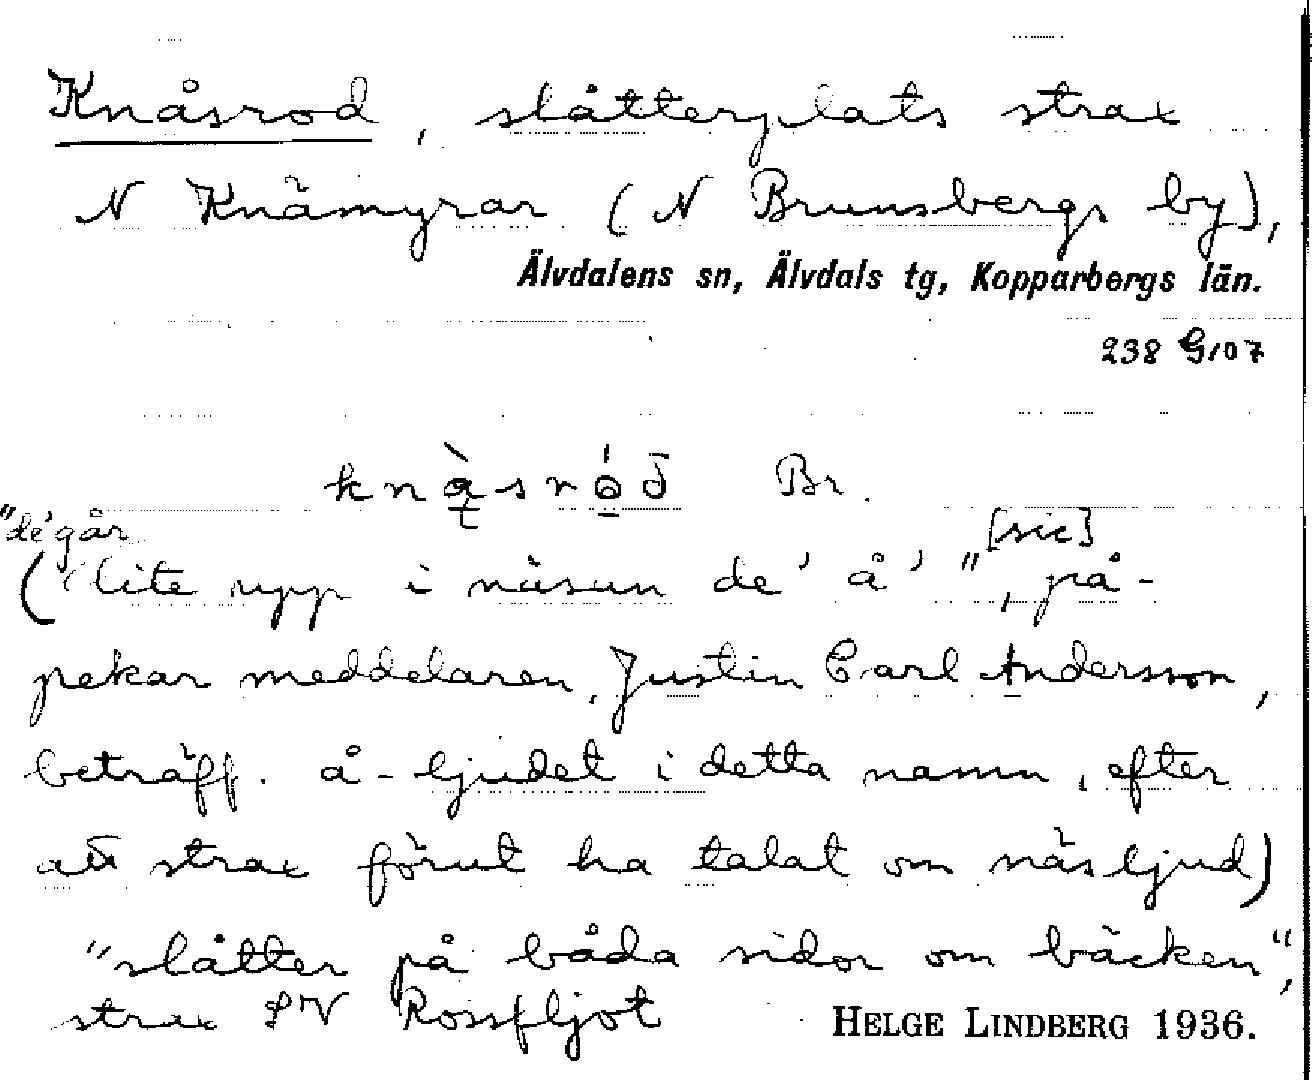 Knåsrod, slåtterplats strax
N Knämyrar (N Brunsbergs by),
Älvdalens sn, Älvdals tg, Kopparbergs län.
238 G107
knà̧sro̱̍δ̄ Br.
"de' går
(lite upp i näsun de' å'", [sic] på-
pekar meddelaren, Justin Carl Andersson,
beträff. å-ljudet i detta namn, efter
att strax förut ha talat om näsljud)
"slåtter på båda sidor om bäcken",
strax SV Rossfljot
HELGE LINDBERG 1936.